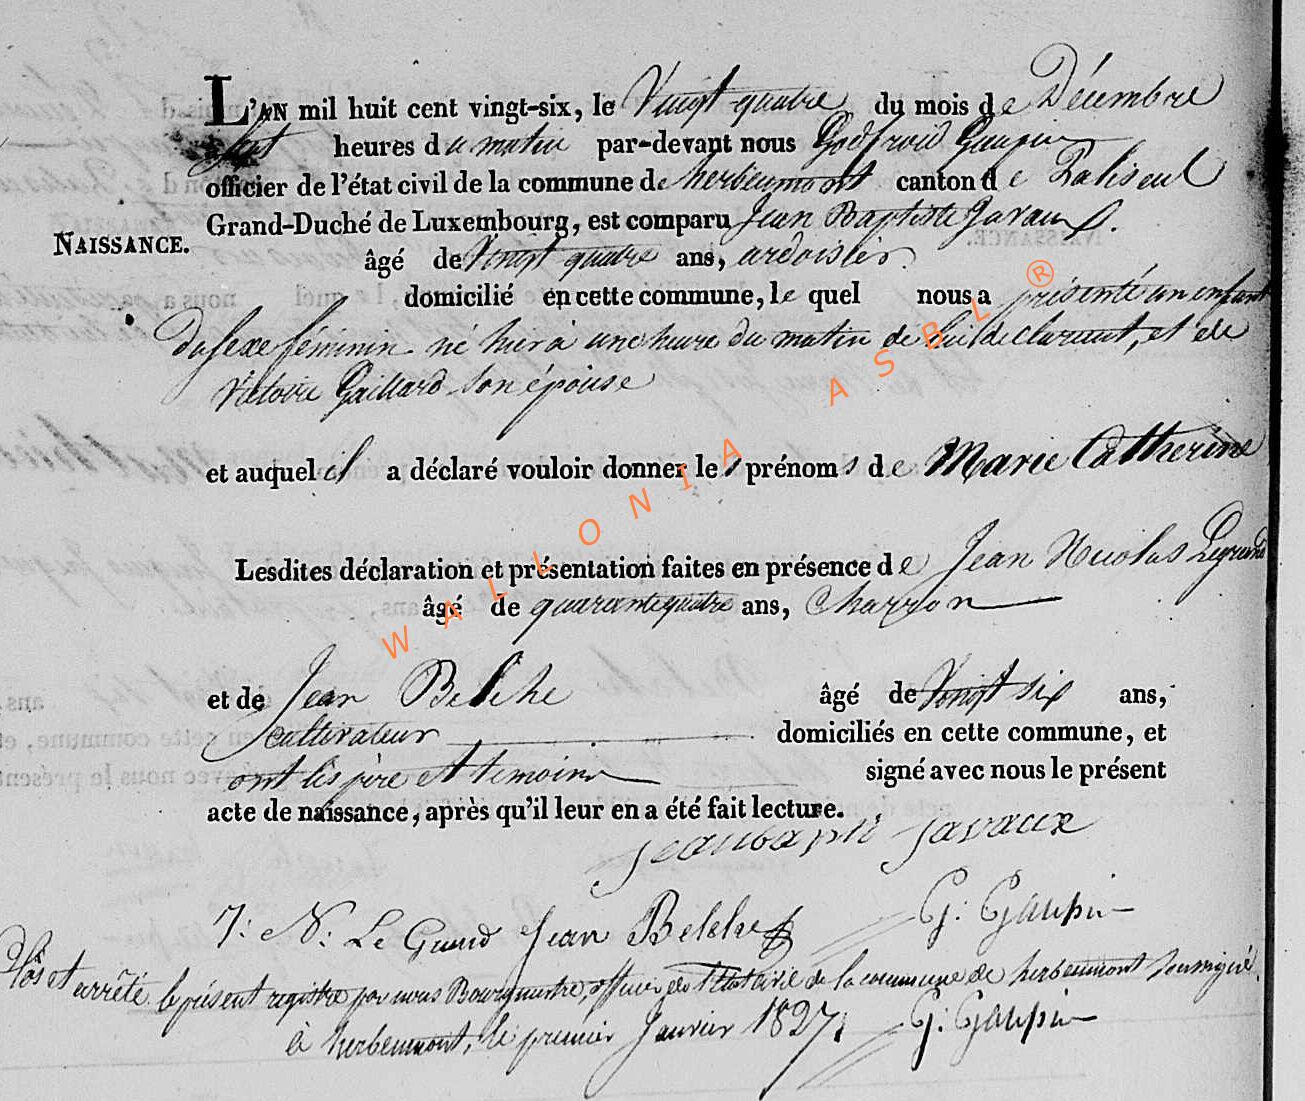 L'AN mil huit cent vingt-six, le Vingt quatre du mois de Décembre
Sept heures du matin par-devant nous Godfroid Gaupin
officier de l'état civil de la commune de herbeumont canton de Paliseul
Grand-Duché de Luxembourg, est comparu Jean Baptiste Javaux
NAISSANCE.
âgé de Vingt quatre ans, ardoisier
domicilié en cette commune, le quel nous a présenté un enfant
du sexe féminin né hier à une heure du matin de lui déclarant, et de
Victoire Gaillard son épouse
et auquel il a déclaré vouloir donner les prénoms de Marie Catherine
Lesdites déclaration et présentation faites en présence de Jean Nicolas Legrand
âgé de quarante quatre ans, Charron
et de Jean Belche âgé de Vingt six ans,
cultivateur domiciliés en cette commune, et
ont les père et témoins signé avec nous le présent
acte de naissance, après qu'il leur en a été fait lecture.
jeanbaptis javaux
J: N: Le Grand Jean Belche G: Gaupin
Clos et arrêté le présent registre par nous Bourgmestre, officier de l'état civil de la commune de herbeumont soussigné,
à herbeumont, le premier Janvier 1827. G: Gaupin
WALLONIA ASBL ®